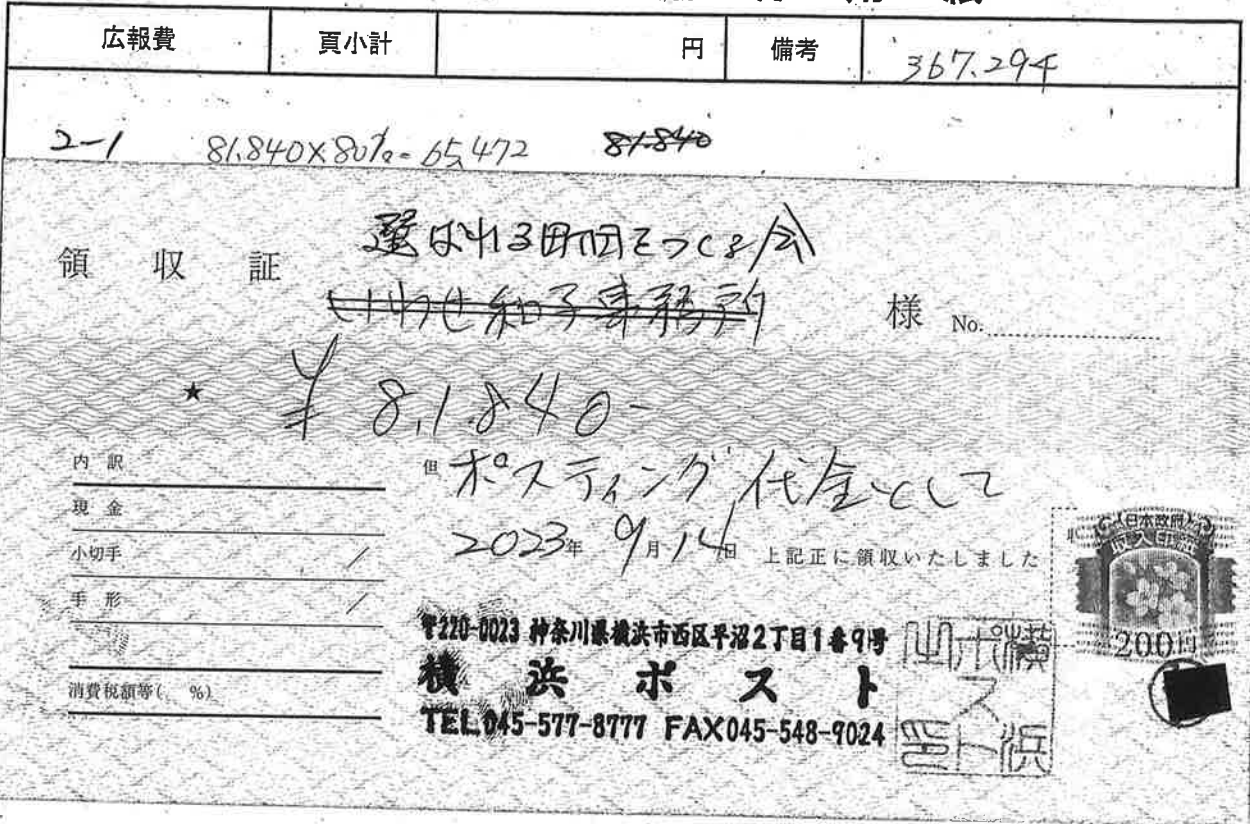 広報費 頁小計 円 備考 367.294
2-1 81.840×80%=65,472 81.840
選ばれる町田をつくる会
領収証 いわせ和子事務所 様 No.
★ ¥81.840-
内訳 但 ポスティング代金として
現金
2023年 9月14日 上記正に領収いたしました
小切手
手形
消費税額等( %)
〒220-0023 神奈川県横浜市西区平沼2丁目1番9号
横浜ポスト
TEL 045-577-8777 FAX 045-548-9024
横浜ポスト之印
日本政府
収入印紙
200円